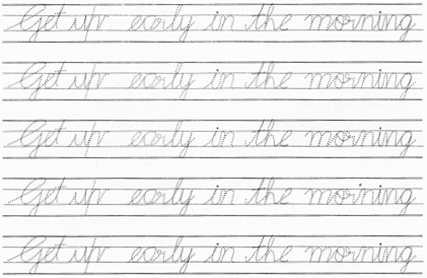 Get up early in the morning
Get up early in the morning
Get up early in the morning
Get up early in the morning
Get up early in the morning